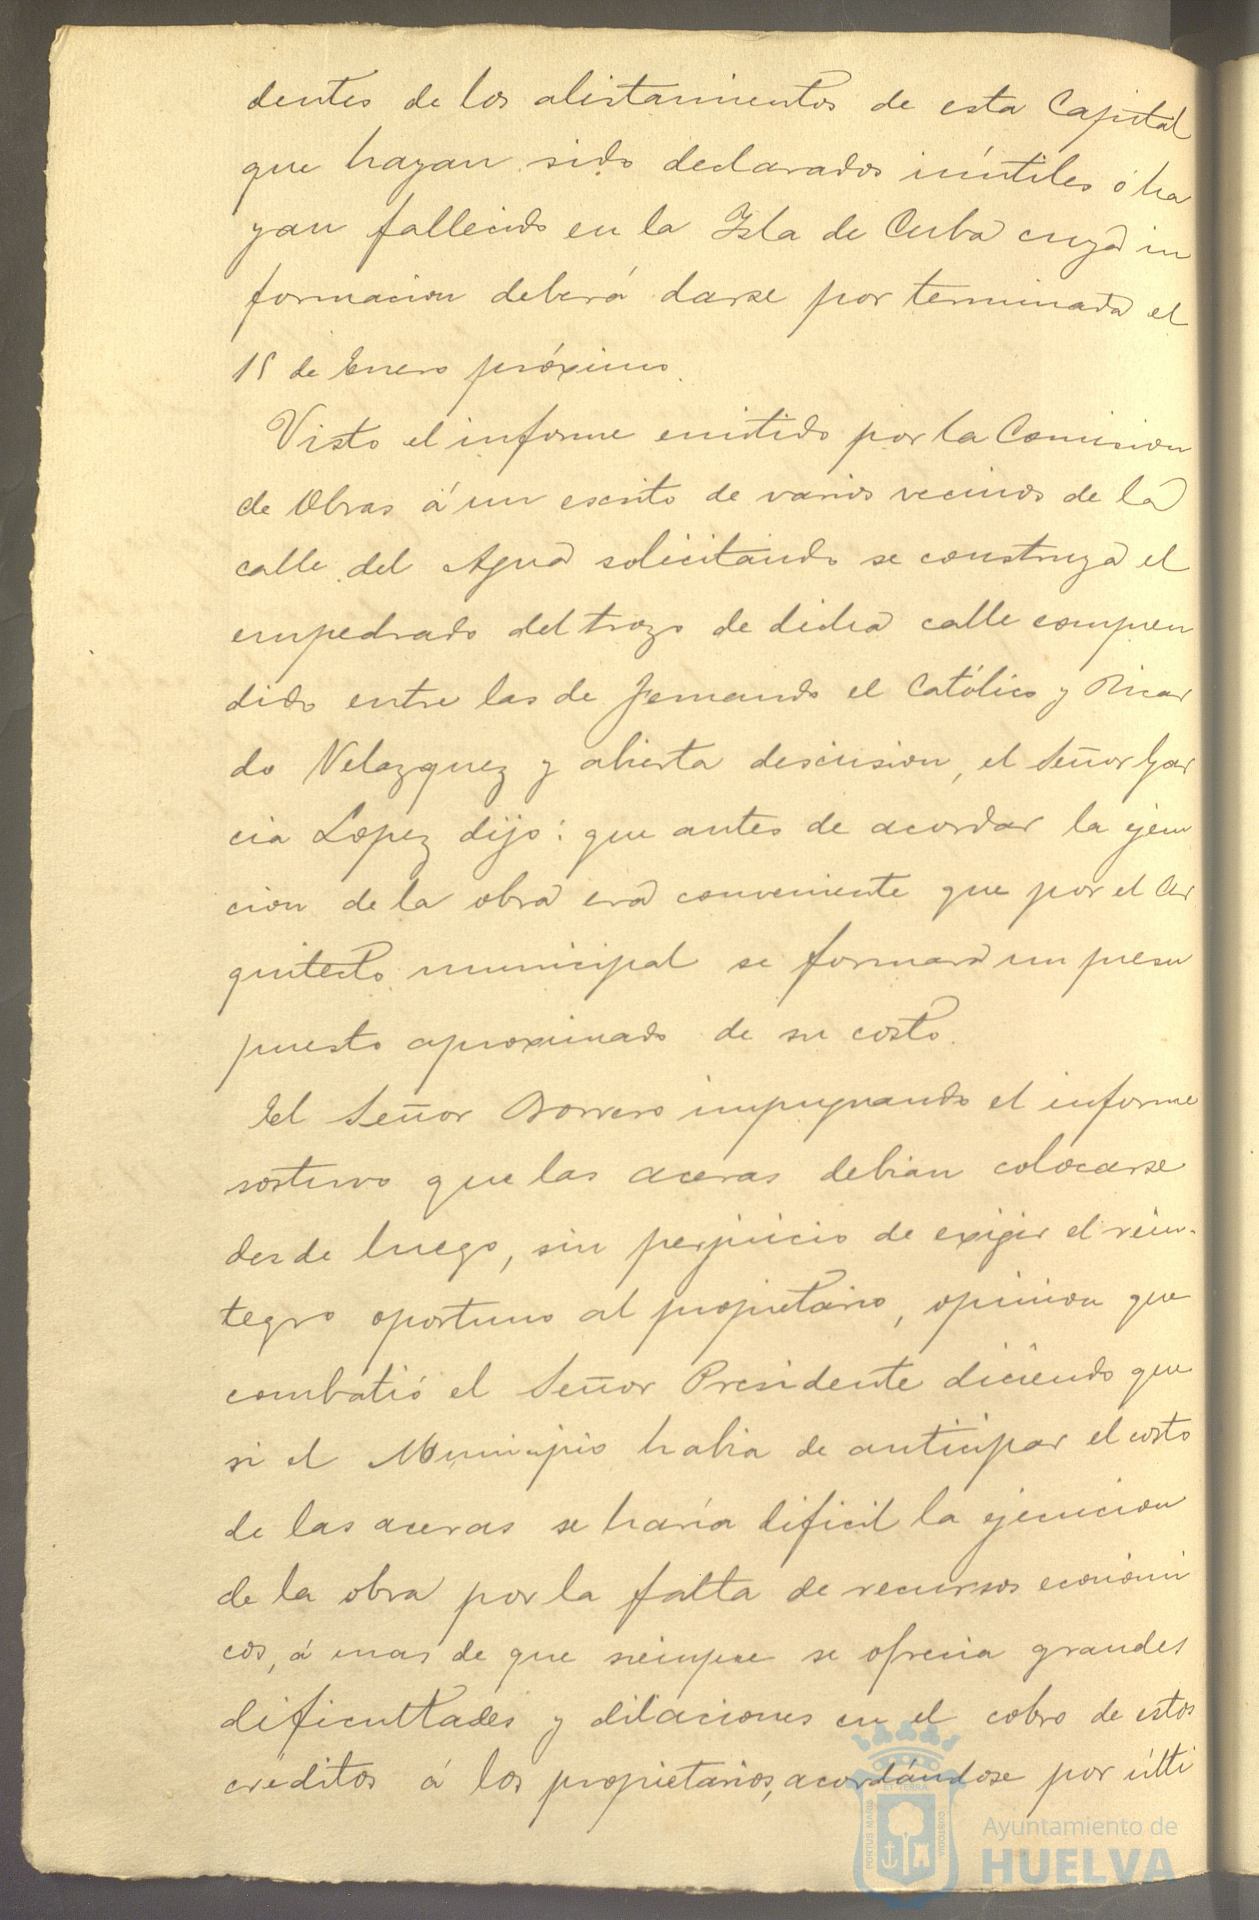 dentes de los alistamientos de esta Capital
que hayan sido declarados inútiles ó ha
yan fallecido en la Isla de Cuba cuya in
formacion deberá darse por terminada el
15 de Enero próximo.
Visto el informe emitido por la Comision
de Obras á un escrito de varios vecinos de la
calle del Agua solicitando se construya el
empedrado del trozo de dicha calle compren
dido entre las de Fernando el Católico y Ricar
do Velazquez y abierta descusion, el Señor Gar
cia Lopez dijo: que antes de acordar la ejecu
cion de la obra era conveniente que por el Ar
quitecto municipal se formara un presu
puesto aproximado de su costo.
El Señor Borrero impugnando el informe
sostuvo que las aceras debian colocarse
desde luego, sin perjuicio de exigir el rein-
tegro oportuno al propietario, opinion que
combatió el Señor Presidente diciendo que
si el Municipio habia de anticipar el costo
de las aceras se haría dificil la ejecucion
de la obra por la falta de recursos económi
cos, á mas de que siempre se ofrecia grandes
dificultades y dilaciones en el cobro de estos
créditos á los propietarios, acordándose por últi
Ayuntamiento de
HUELVA